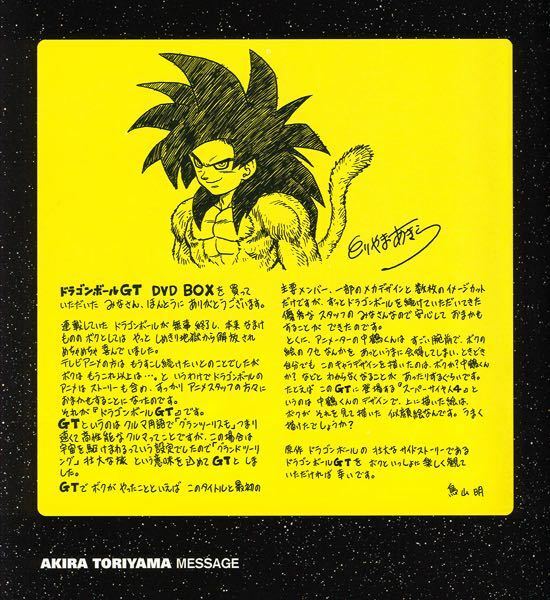 とりやまあきら
ドラゴンボールGT DVD BOXを買って
いただいた みなさん、ほんとうに ありがとうございます。
連載していた ドラゴンボールが 無事 終了し、本来 なまけ
ものの ボクとしては やっと しめきり地獄から 解放され
めちゃめちゃ 喜んで いました。
テレビアニメの方は もうすこし続けたいとのことでしたが
ボクは もうこれ以上は…。と いうわけで ドラゴンボールの
アニメは ストーリーも含め、すっかり アニメスタッフの方々に
おまかせることに なったのです。
それが『ドラゴンボールGT』です。
GTというのは クルマ用語で『グランツーリスモ』、つまり
速くて 高性能な クルマってことですが、この場合は
宇宙を 駆けまわるっていう 設定でしたので『グランドツーリ
ング』、壮大な旅 という 意味を 込めて GTと しま
した。
GTで ボクが やったことと いえば このタイトルと 最初の
主要メンバー、一部の メカデザインと 数枚の イメージカット
だけですが、ずっと ドラゴンボールを 続けていただいてきた
優秀な スタッフの みなさんなので 安心して おまかせ
することが できたのです。
とくに、アニメーターの 中鶴くんは すごい 腕前で、ボクの
絵の クセ なんかも あっという間に 会得してしまい、ときどき
自分でも このキャラデザインを 描いたのは、ボクか？ 中鶴くん
か？ などと わからなくなることが あったりするくらいです。
たとえば この GTに 登場する『スーパーサイヤ人4』と
いうのは 中鶴くんの デザインで、上に 描いた絵は、
ボクが それを 見て 描いた 似顔絵なんです。うまく
描けたでしょうか？
原作 ドラゴンボールの 壮大な サイドストーリーである
ドラゴンボールGTを ボクと いっしょに 楽しく 観て
いただければ 幸いです。
鳥山明
AKIRA TORIYAMA MESSAGE